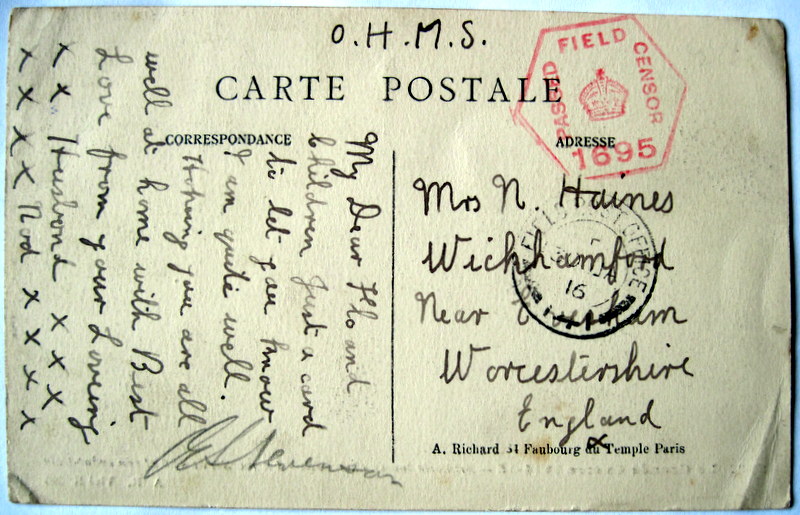 O.H.M.S.
PASSED FIELD CENSOR
1695
CARTE POSTALE
CORRESPONDANCE
ADRESSE
My Dear Flo and
children Just a card
to let you know
I am quite well.
Hoping you are all
well at home with Best
Love from your Loveing
x x Husband x x x
x x x x Nod x x x x
Stevenson
Mrs N. Haines
Wickhamford
Near Evesham
Worcestershire
England
FIELD POST OFFICE
16
A. Richard 84 Faubourg du Temple Paris